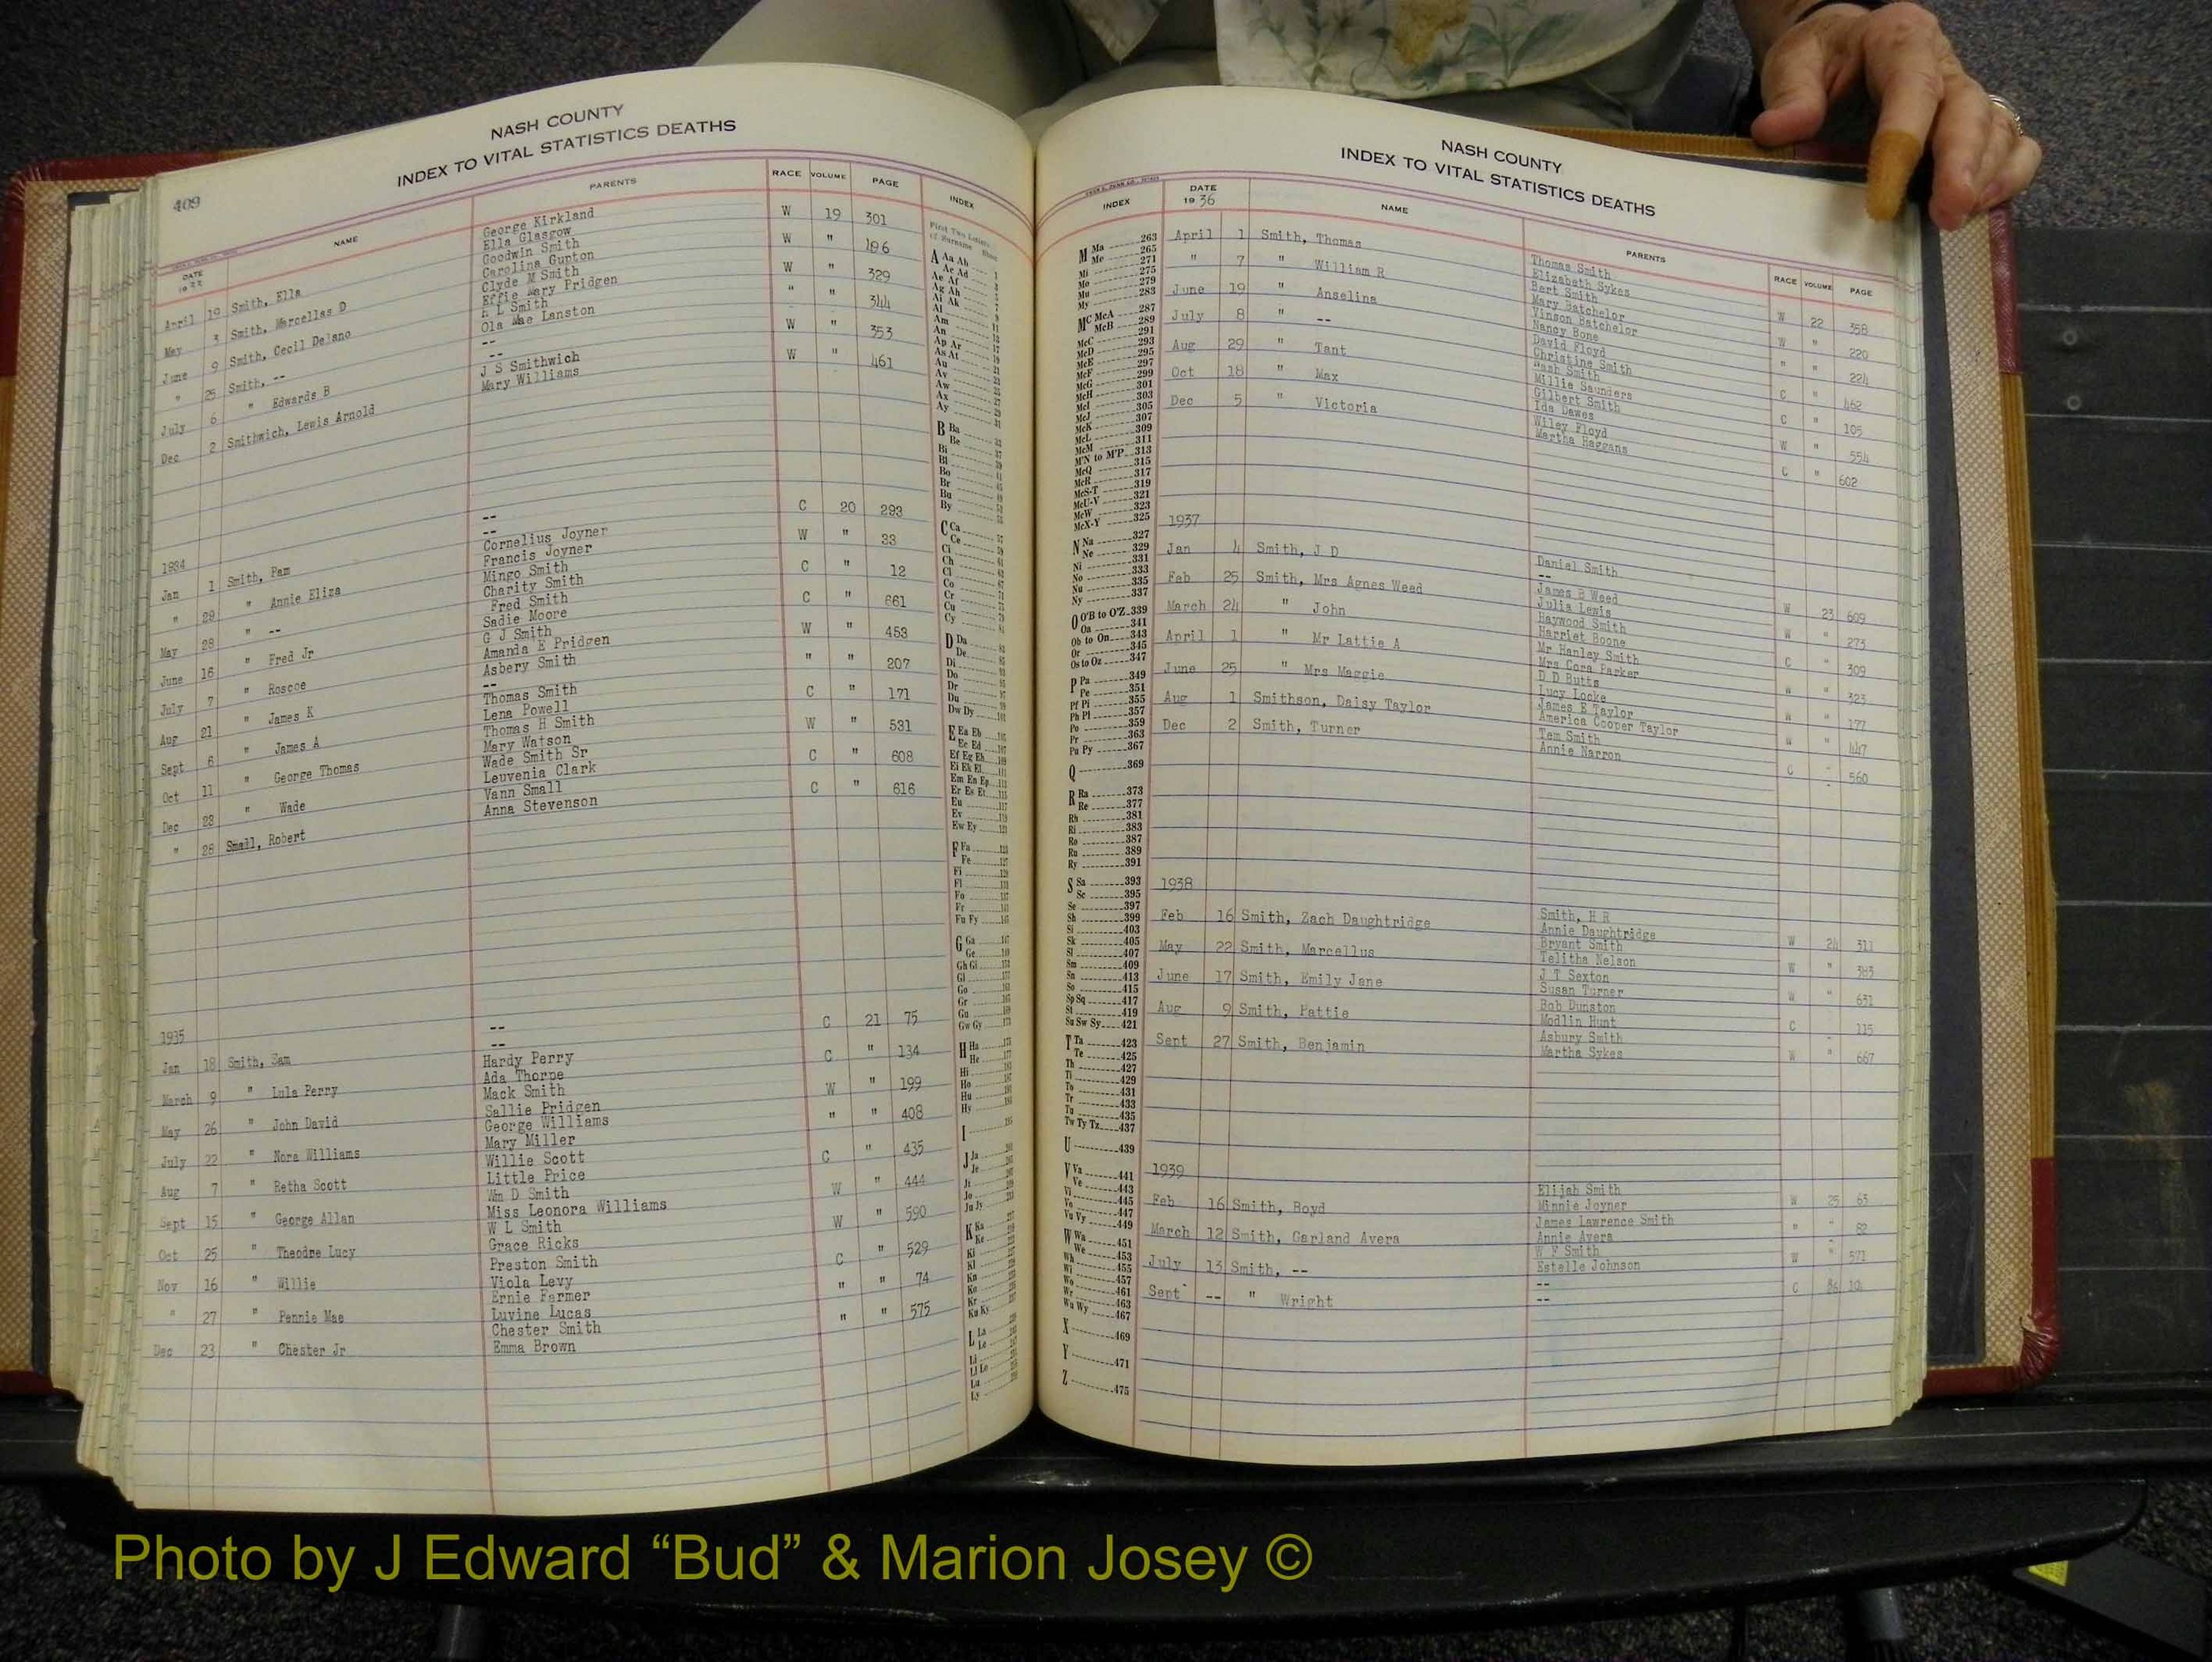 409
NASH COUNTY
INDEX TO VITAL STATISTICS DEATHS
DATE NAME PARENTS RACE VOLUME PAGE INDEX
April 19 Smith, Ella George Kirkland W 19 301
Ella Glasgow
May 3 Smith, Marcellas D Goodwin Smith W " 186
Carolina Gupton
June 9 Smith, Cecil Delano Clyde M Smith W " 329
Effie Mary Pridgen
" 25 Smith, -- L Smith " " 344
Ola Mae Lanston
July 6 " Edwards B -- W " 353
--
Dec 2 Smithwich, Lewis Arnold J S Smithwich W " 461
Mary Williams
1934
Jan 1 Smith, Pam -- C 20 293
--
" 29 " Annie Eliza Cornelius Joyner W " 33
Francis Joyner
May 28 " -- Mingo Smith C " 12
Charity Smith
June 16 " Fred Jr Fred Smith C " 661
Sadie Moore
July 7 " Roscoe G J Smith W " 453
Amanda E Pridgen
Aug 21 " James K Asbery Smith " " 207
--
Sept 6 " James A Thomas Smith C " 171
Lena Powell
Oct 11 " George Thomas Thomas H Smith W " 531
Mary Watson
Dec 23 " Wade Wade Smith Sr C " 608
Leuvenia Clark
" 28 Small, Robert Vann Small C " 616
Anna Stevenson
1935
Jan 18 Smith, Sam -- C 21 75
--
March 9 " Lula Perry Hardy Perry C " 134
Ada Thorpe
May 26 " John David Mack Smith W " 199
Sallie Pridgen
July 22 " Nora Williams George Williams " " 408
Mary Miller
Aug 7 " Retha Scott Willie Scott C " 435
Little Price
Sept 15 " George Allan Wm D Smith W " 444
Miss Leonora Williams
Oct 25 " Theodre Lucy W L Smith W " 590
Grace Ricks
Nov 16 " Willie Preston Smith C " 529
Viola Levy
" 27 " Pennie Mae Ernie Farmer " " 74
Luvine Lucas
Dec 23 " Chester Jr Chester Smith " " 575
Emma Brown
First Two Letters
of Surname Sheet
A Aa Ah
Ae Ad
Ae Af
Ag Ah
Ai Ak
Al
Am
An
Ap Ar
As At
Au
Av
Aw
Ax
Ay
B Ba
Be
Bi
Bl
Bo
Br
Bu
By
C Ca
Ce
Ci
Ch
Cl
Co
Cr
Cu
Cy
D Da
De
Di
Do
Dr
Du
Dw Dy
E Ea Eb
Ec Ed
Ef Eg Eh
Ei Ek El
Em En Ep
Er Es Et
Eu
Ev
Ew Ey
F Fa
Fe
Fi
Fl
Fo
Fr
Fu Fy
G Ga
Ge
Gh Gi
Gl
Go
Gr
Gu
Gw Gy
H Ha
He
Hi
Ho
Hu
Hy
I
J Ja
Je
Ji
Jo
Ju Jy
K Ka
Ke
Ki
Kl
Kn
Ko
Kr
Ku Ky
L La
Le
Li
Ll Lo
Lu
Ly
NASH COUNTY
INDEX TO VITAL STATISTICS DEATHS
INDEX DATE NAME PARENTS RACE VOLUME PAGE
1936
April 1 Smith, Thomas Thomas Smith W 22 358
Elizabeth Sykes
" 7 " William R Bert Smith W " 220
Mary Batchelor
June 19 " Anselina Vinson Batchelor " " 224
Nancy Bone
July 8 " -- David Floyd C " 462
Christine Smith
Aug 29 " Tant Nash Smith C " 105
Millie Saunders
Oct 18 " Max Gilbert Smith W " 554
Ida Dawes
Dec 5 " Victoria Wiley Floyd C " 602
Martha Haggans
1937
Jan 4 Smith, J D Daniel Smith W 23 609
--
Feb 25 Smith, Mrs Agnes Weed James B Weed W " 273
Julia Lewis
March 24 " John Haywood Smith C " 309
Harriet Boone
April 1 " Mr Lattie A Mr Hanley Smith W " 323
Mrs Cora Parker
June 25 " Mrs Maggie D D Butts W " 177
Lucy Locke
Aug 1 Smithson, Daisy Taylor James E Taylor W " 447
America Cooper Taylor
Dec 2 Smith, Turner Tem Smith C " 560
Annie Narron
1938
Feb 16 Smith, Zach Daughtridge Smith, H R W 24 311
Annie Daughtridge
May 22 Smith, Marcellus Bryant Smith W " 383
Telitha Nelson
June 17 Smith, Emily Jane J T Sexton W " 631
Susan Turner
Aug 9 Smith, Pattie Bob Dunston C 115
Modlin Hunt
Sept 27 Smith, Benjamin Asbury Smith W " 667
Martha Sykes
1939
Feb 16 Smith, Boyd Elijah Smith W 25 63
Minnie Joyner
March 12 Smith, Garland Avera James Lawrence Smith " " 82
Annie Avera
July 13 Smith, -- W F Smith W " 571
Estelle Johnson
Sept -- " Wright -- C
--
M Ma 263
Me 265
Mi 271
Mo 275
Mu 279
My 283
MC McA 287
McB 289
McC 291
McD 293
McE 295
McF 297
McG 299
McH 301
McI 303
McJ 305
McK 307
McL 309
McM 311
M'N to M'P 313
McQ 315
McR 317
McS-T 319
McU-V 321
McW 323
McX-Y 325
N Na 327
Ne 329
Ni 331
No 333
Nu 335
Ny 337
O O'B to O'Z 339
Oa 341
Ob to On 343
Or 345
Os to Oz 347
P Pa 349
Pe 351
Pf Pi 355
Ph Pl 357
Po 359
Pr 363
Pu Py 367
Q 369
R Ra 373
Re 377
Rh 381
Ri 383
Ro 387
Ru 389
Ry 391
S Sa 393
Sc 395
Se 397
Sh 399
Si 403
Sk 405
Sl 407
Sm 409
Sn 413
So 415
Sp Sq 417
St 419
Su Sw Sy 421
T Ta 423
Te 425
Th 427
Ti 429
To 431
Tr 433
Tu 435
Tw Ty Tz 437
U 439
V Va 441
Ve 443
Vi 445
Vo 447
Vu Vy 449
W Wa 451
We 453
Wh 455
Wi 457
Wo 461
Wr 463
Wu Wy 467
X 469
Y 471
Z 475
Photo by J Edward “Bud” & Marion Josey ©